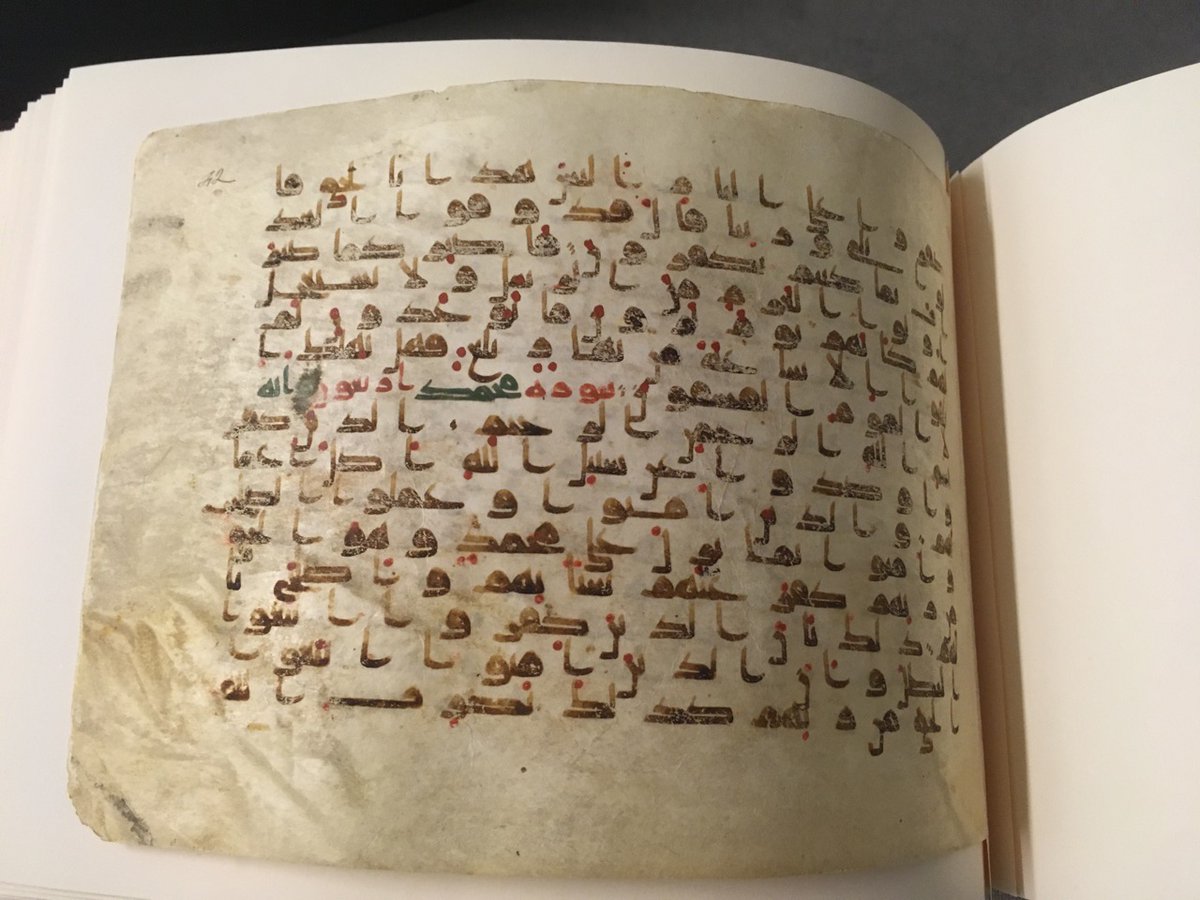 على النار اليس هذا بالحق قا
لوا بلى وربنا قال فذوقوا العذ
اب بما كنتم تكفرون فاصبر كما صبر
اولوا العزم من الرسل ولا تستعجل
لهم كانهم يوم يرون ما يوعدون لم
يلبثوا الا ساعة من نهار بلغ فهل يهلك
الا القوم الفسقون سورة محمد
بسم الله الرحمن الرحيم الذين كفر
وا وصدوا عن سبيل الله اضل اعما
لهم والذين امنوا وعملوا الصلح
ت وامنوا بما نزل على محمد وهو الحق
من ربهم كفر عنهم سياتهم واصلح با
لهم ذلك بان الذين كفروا اتبعوا ا
لبطل وان الذين امنوا اتبعوا ا
لحق من ربهم كذلك يضرب الله